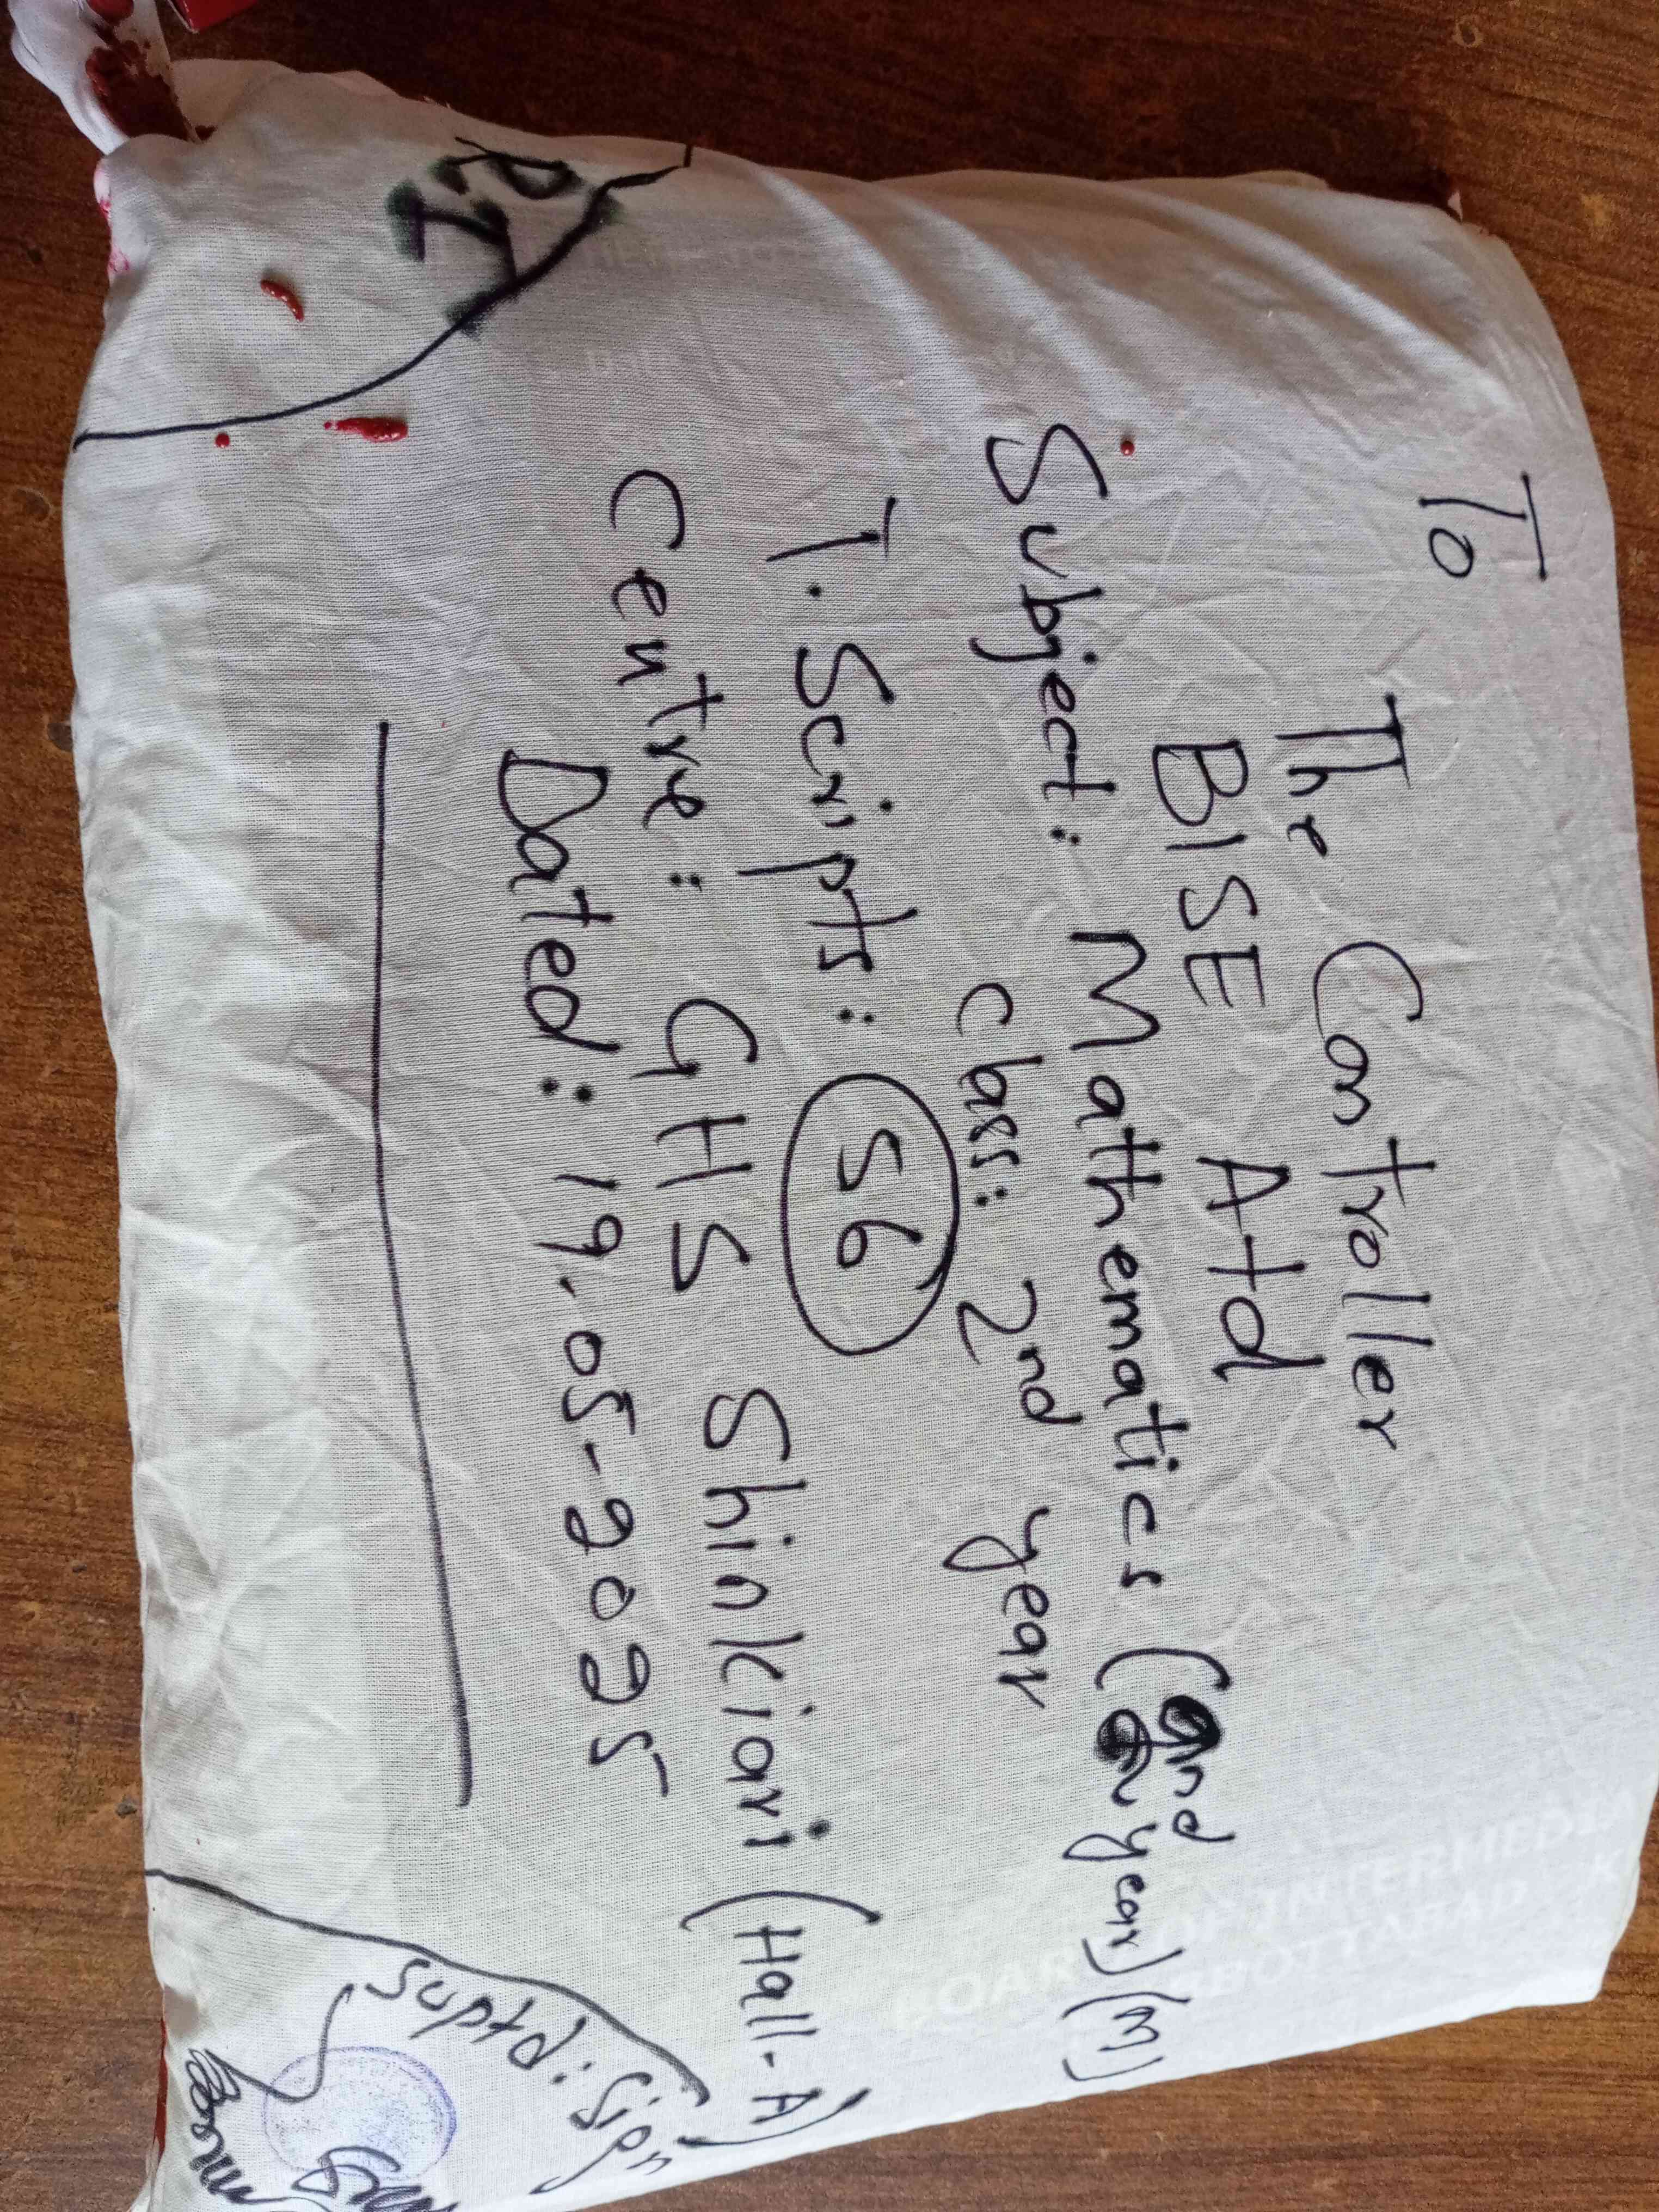 To
The Controller
BISE Atd
Subject: Mathematics (2nd year) (M)
Class: 2nd year
T. Scripts: 56
Centre: GHS Shinkiari (Hall-A)
Dated: 19.05-2025
Sign:
BOARD OF INTERMEDIA
ABBOTTABAD